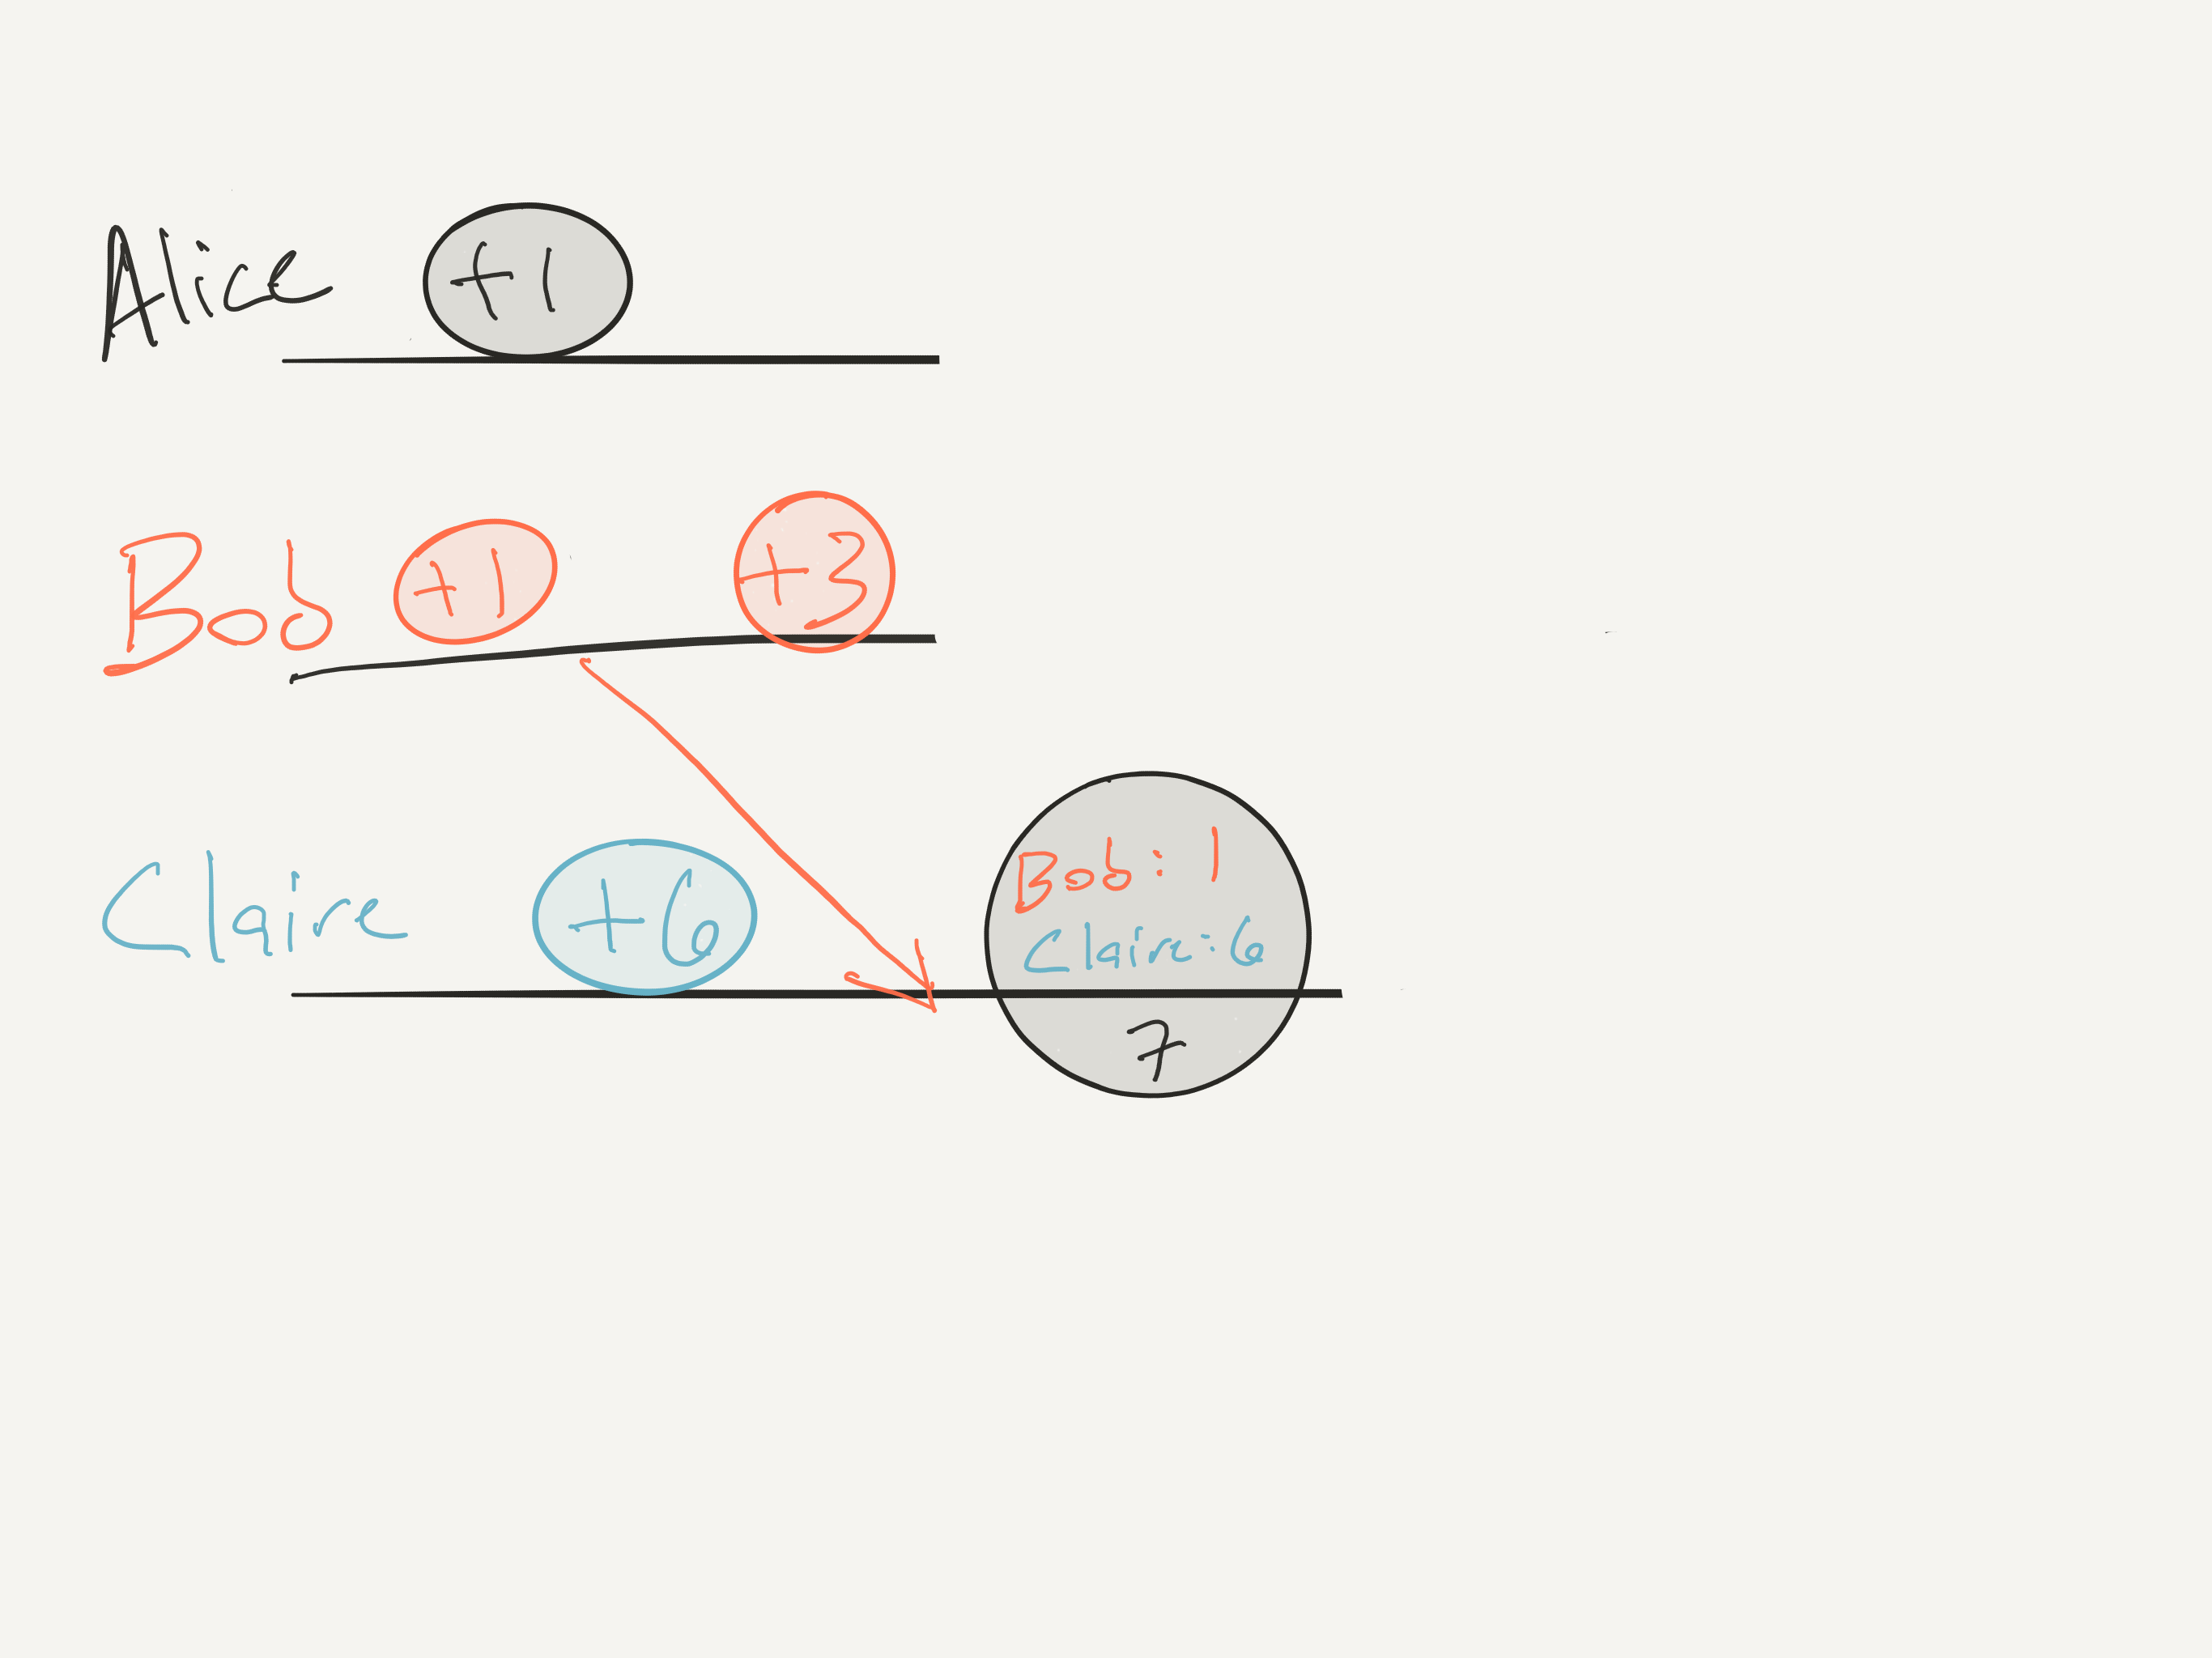 Alice
+1
Bob
+1
+3
Claire
+6
Bob: 1
Claire: 6
7